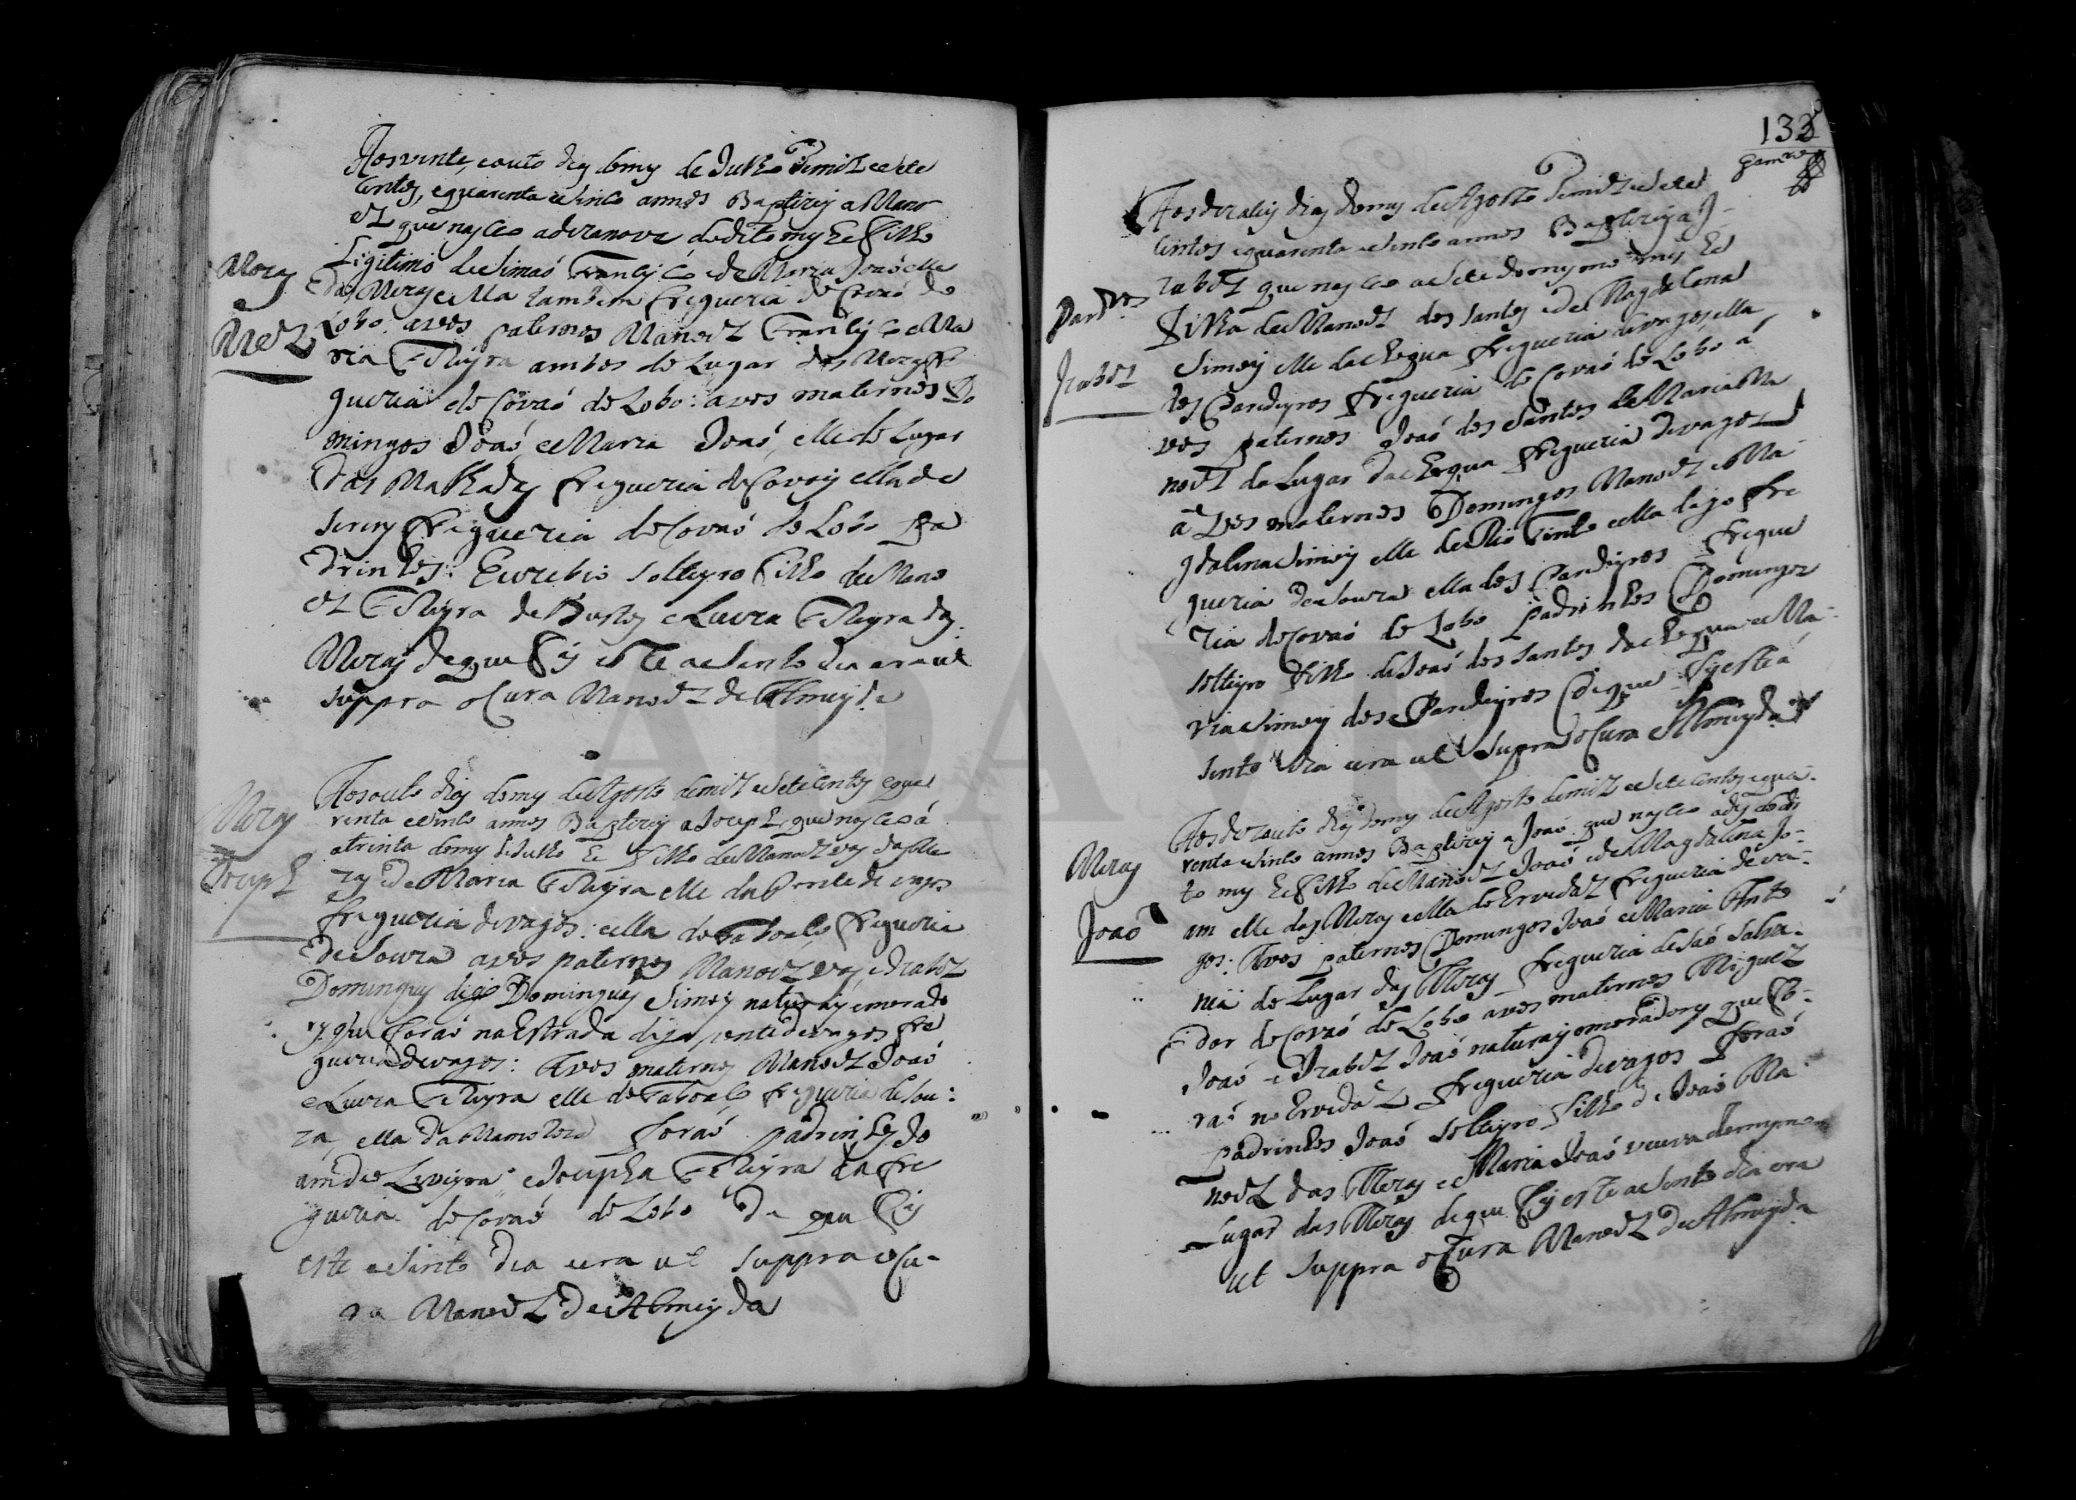 Aos vinte, e outo dias do mes de Julho de mil e sete
centos, e quarenta e sinco annos Baptizey a Mano
el que nasceo a dezanove do dito mes he filho
Ligitimo de Simaõ Francisco e de Maria Joaõ elle
das Mezas e ella tambem freguezia de Covaõ do
Mezas
Lobo: avos paternos Manoel Francisco e Ma
Mel
ria Ferreyra ambos do Lugar das Mezas fre
guezia de Covaõ de Lobo: avos maternos Do
mingos Joaõ, e Maria Joaõ, elle do Lugar
das Malhadas freguezia de Covois ella de
freguezia de Covaõ de Lobo Pa
drinhos: Euzebio solteyro filho de Mano
el Ferreyra de Bustos e Luiza Ferreyra das
Mezas de que fis este asento dia era ut
suppra o Cura Manoel de Almeyda
Aos outo dias do mes de Agosto de mil e sete centos e qua
renta e sinco annos Baptizey a Joseph, que nasceo a
Mezas
trinta do mes de Julho he filho de Manoel
Joseph
e de Maria Ferreyra elle da Ponte de vagos
freguezia de vagos: e ella do Taboaço freguezia
de Souza avos paternos Manoel e Izabel
Domingues digo Domingues Simois naturais e morado
res que foraõ na Estrada digo ponte de vagos fre
guezia de vagos: Avos maternos Manoel Joaõ
e Luiza Ferreyra elle do Taboaço freguezia de Sou:
za, ella da foraõ padrinhos
e Josepha Ferreyra da fre
guezia de Covaõ de Lobo de que fis
este asento dia era ut suppra o Cu-
ra Manoel de Almeyda
133
Aos dezaseis dias do mes de Agosto de mil e sete
centos e quarenta e sinco annos Baptizey a I-
zabel que nasceo a sete do mesmo mes he
Pardros
filha de Manoel dos Santos e de Magdalena
Izabel
Simois elle da Legua freguezia de vagos, ella
dos Pardeyros freguezia de Covaõ do Lobo a
vos paternos Joaõ dos Santos e Maria Ma
noel do Lugar da Legua freguezia de vagos
avos maternos Domingos Manoel e Ma
gdalena Simois elle de Rio Tinto e ella digo fre
guezia de Souza ella dos Pardeyros fregue
zia de Covaõ de Lobo Padrinhos Domingos
solteyro filho de Joaõ dos Santos da Legua e Ma-
ria Simois dos Pardeyros de que fis este a
sento dia era ut supra o Cura Almeyda
Aos dezouto dias do mes de Agosto de mil e sete centos e qua-
renta e sinco annos Baptizey a Joaõ que nasceo a dis do di
Mezas
to mes he filho de Manoel Joaõ e de Magdalena Jo-
Joaõ
am elle das Mezas e ella do Ervedal freguezia de va-
gos: Avos paternos Domingos Joaõ e Maria Anto
nia do Lugar das Mezas freguezia de Saõ Salva-
dor de Covaõ de Lobo avos maternos Miguel
Joaõ e Izabel Joaõ naturais e moradores que fo-
raõ no Ervedal freguezia de vagos foraõ
padrinhos Joaõ solteyro filho de Joaõ Ma
noel das Mezas e Maria Joaõ viuva do mesmo
Lugar das Mezas de que fis este asento dia era
ut suppra o Cura Manoel de Almeyda